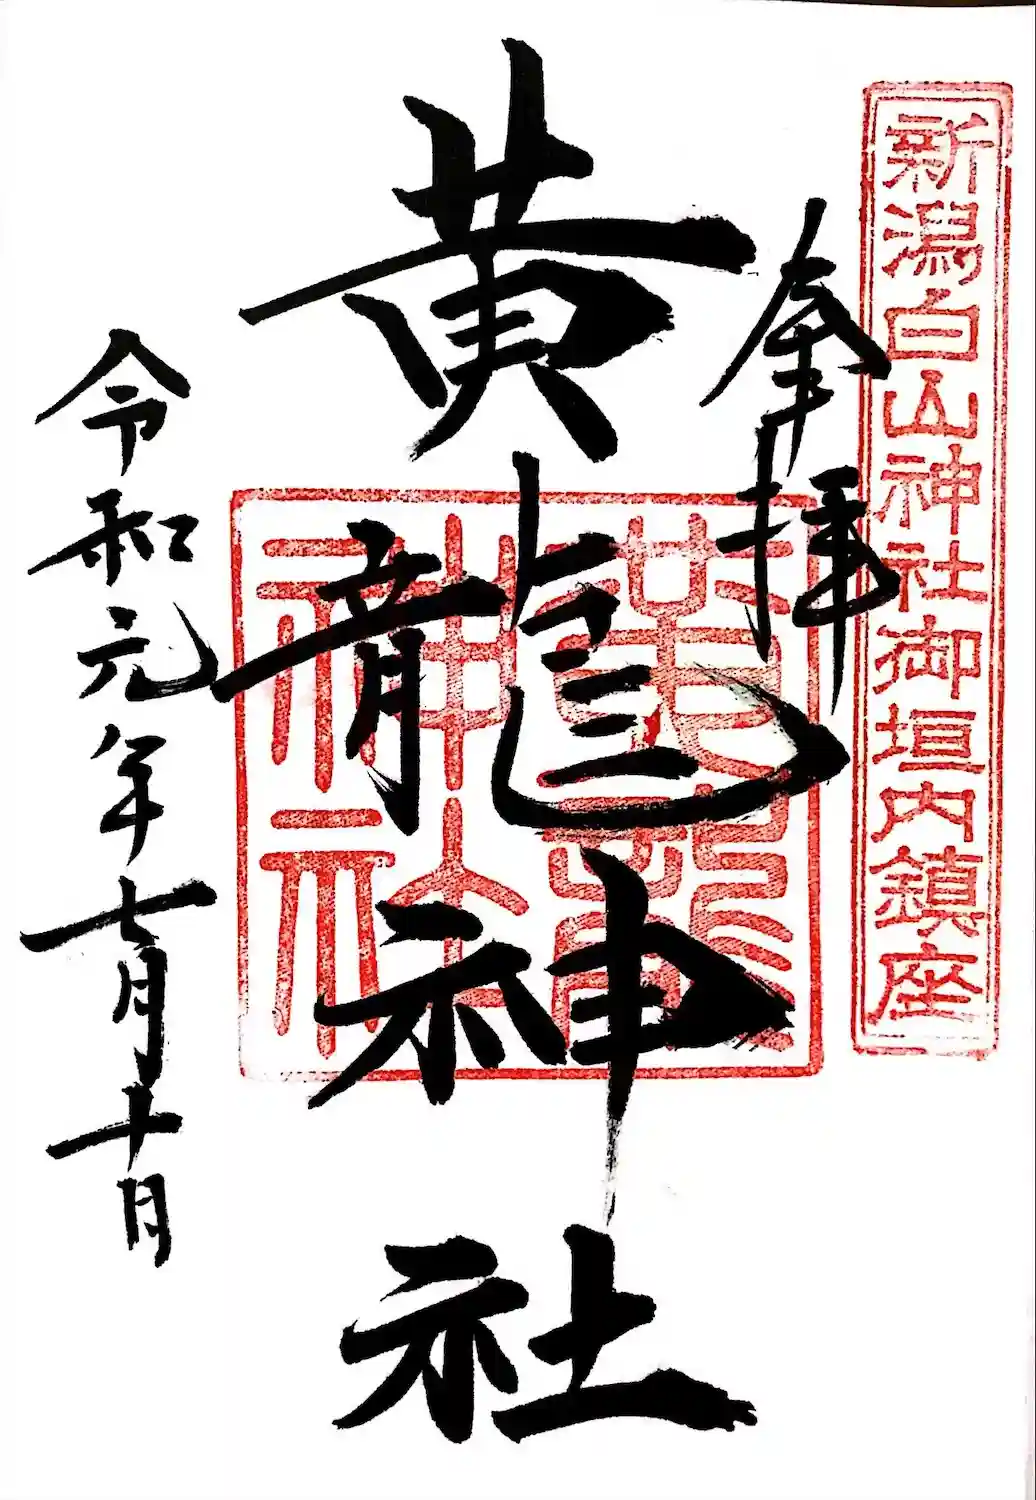 新潟白山神社御垣内鎮座
奉拝
黄龍神社
黄龍
神社
令和元年七月十日